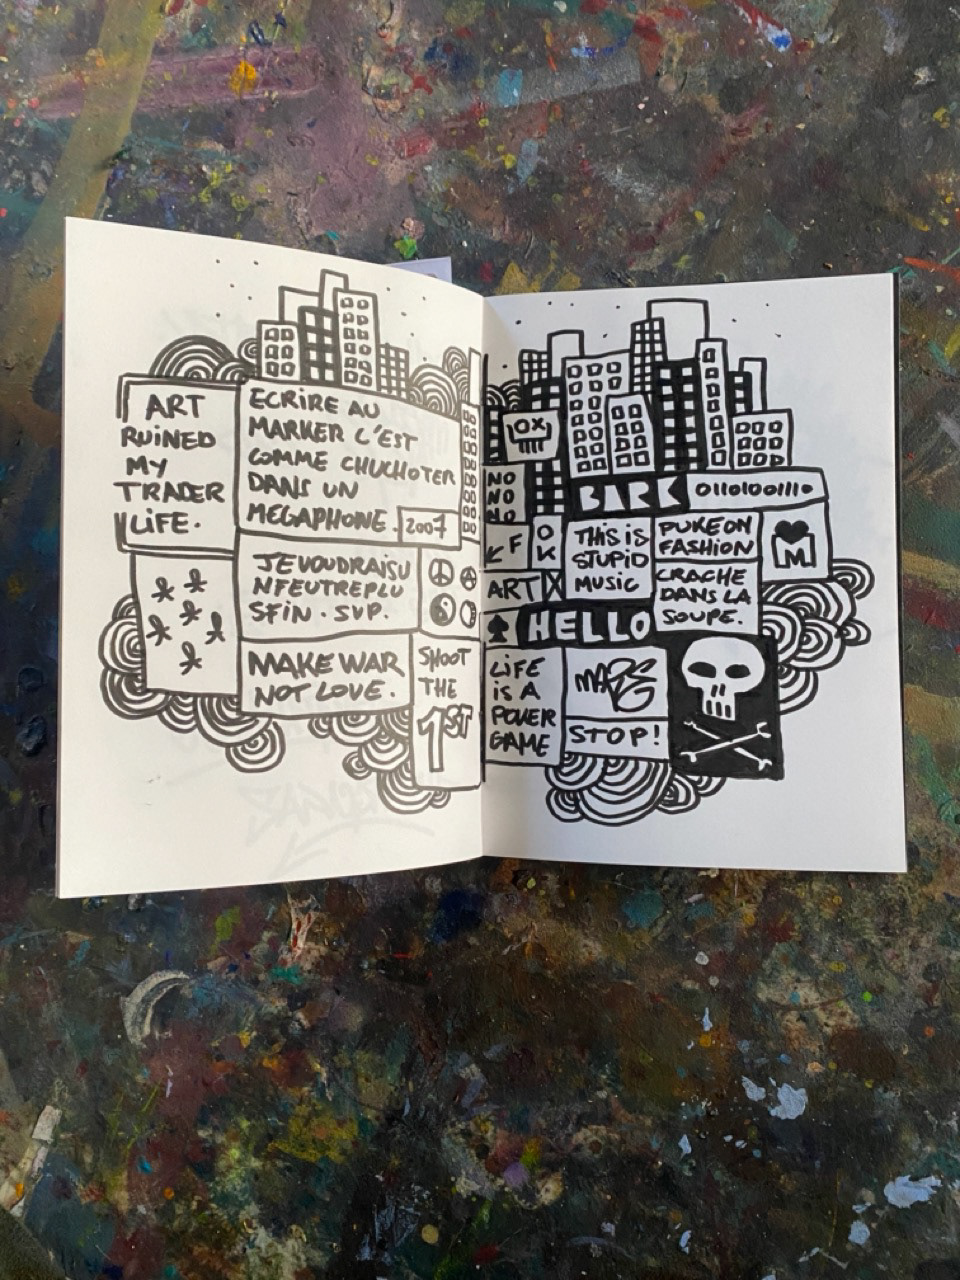 ART
RUINED
MY
TRADER
LIFE.
ECRIRE AU
MARKER C'EST
COMME CHUCHOTER
DANS UN
MEGAPHONE.
2007
JEVOUDRAISU
NFEUTREPLU
SFIN. SVP.
MAKE WAR
NOT LOVE.
SHOOT
THE
1ST
OX
NO
NO
NO
BARK
F
OK
ART X
HELLO
THIS IS
STUPID
MUSIC
PUKE ON
FASHION
CRACHE
DANS LA
SOUPE.
M
LIFE
IS A
POWER
GAME
STOP!